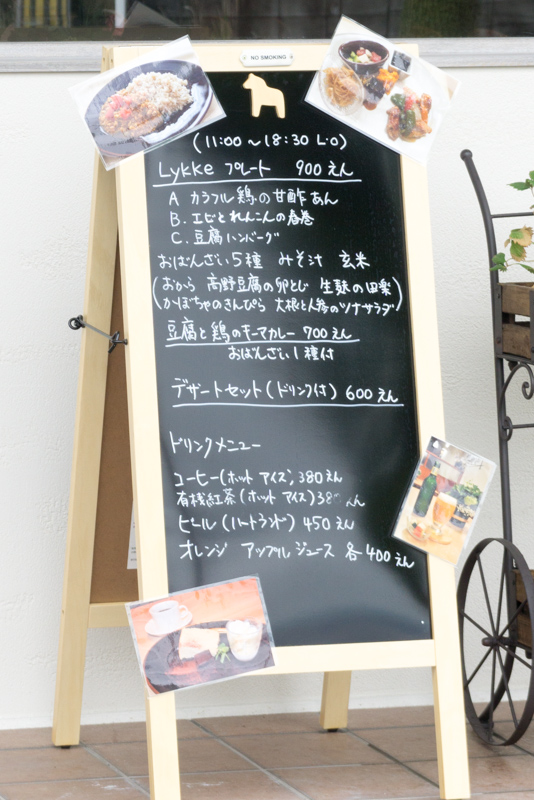 NO SMOKING
(11:00 ～ 18:30 L.O)
Lykke プレート 900えん
A カラフル鶏の甘酢あん
B. エビとれんこんの春巻
C. 豆腐ハンバーグ
おばんざい5種 みそ汁 玄米
(おから 高野豆腐の卵とじ 生麩の田楽
かぼちゃのきんぴら 大根と人参のツナサラダ)
豆腐と鶏のキーマカレー 700えん
おばんざい1種付
デザートセット(ドリンク付) 600えん
ドリンクメニュー
コーヒー(ホット アイス) 380えん
有機紅茶(ホット アイス) 38 えん
ビール(ハートランド) 450えん
オレンジ アップルジュース 各400えん